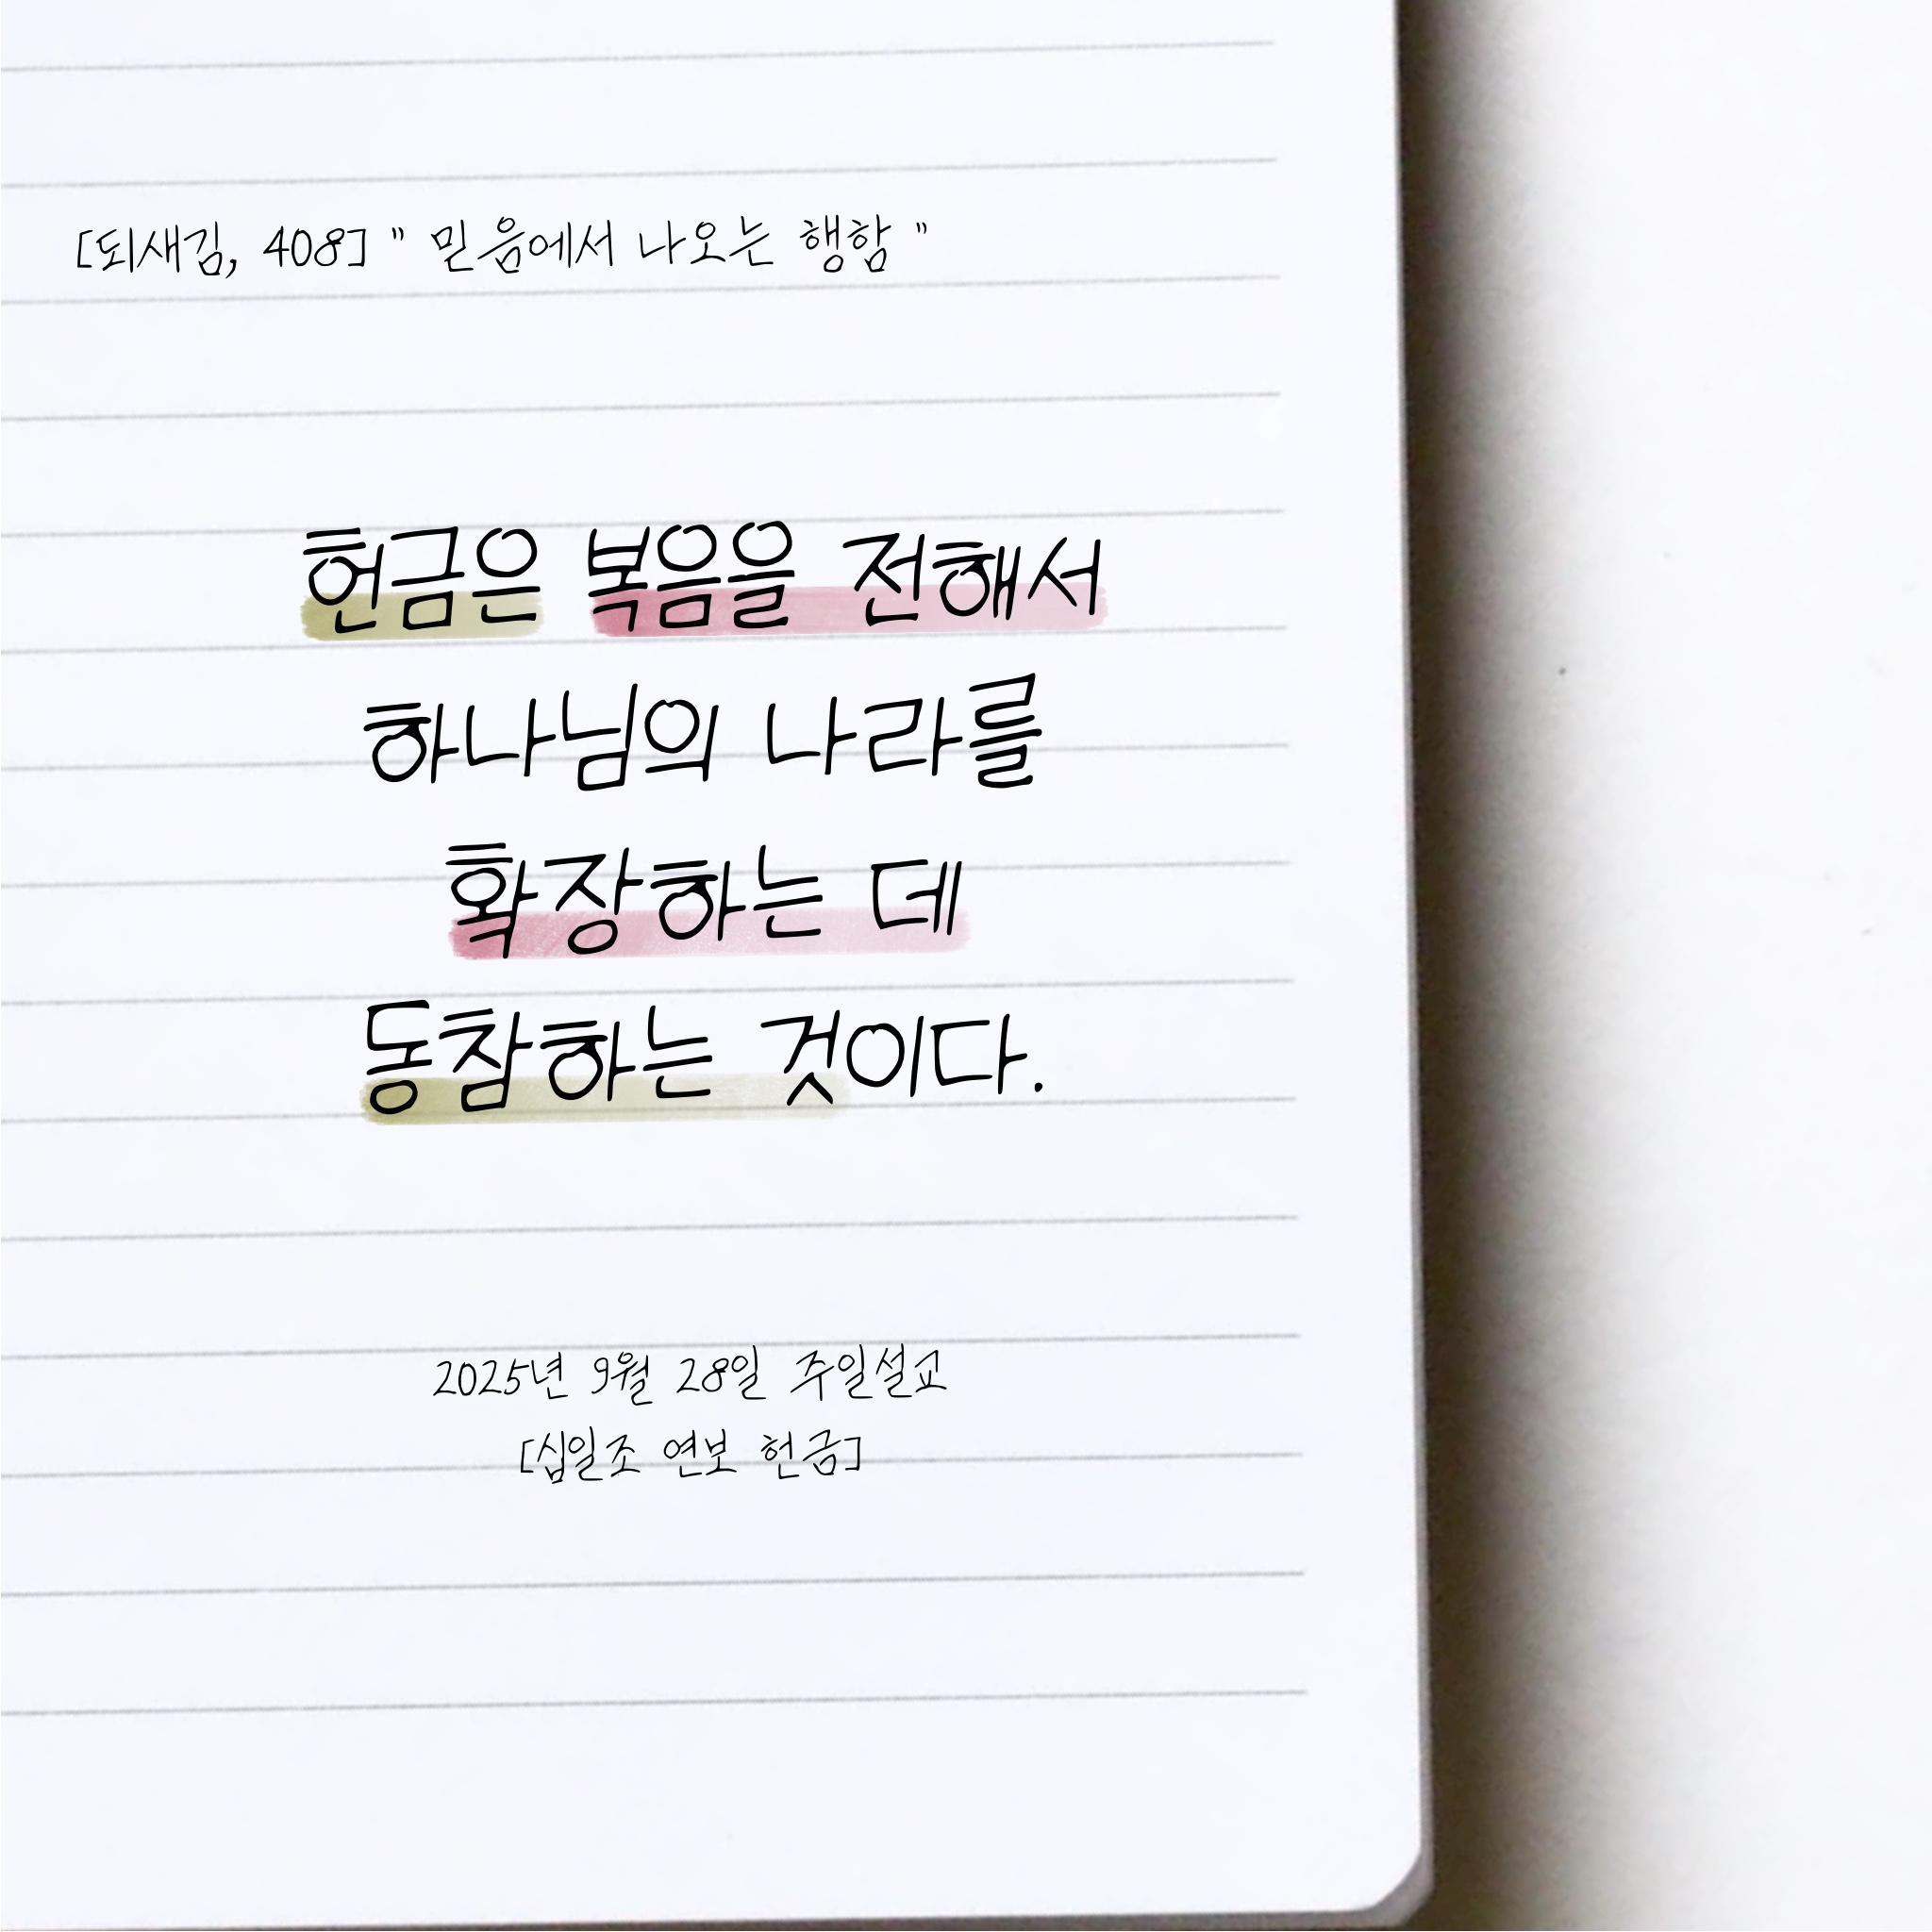 [되새김, 408] " 믿음에서 나오는 행함 "
헌금은 복음을 전해서
하나님의 나라를
확장하는 데
동참하는 것이다.
2025년 9월 28일 주일설교
[십일조 연보 헌금]